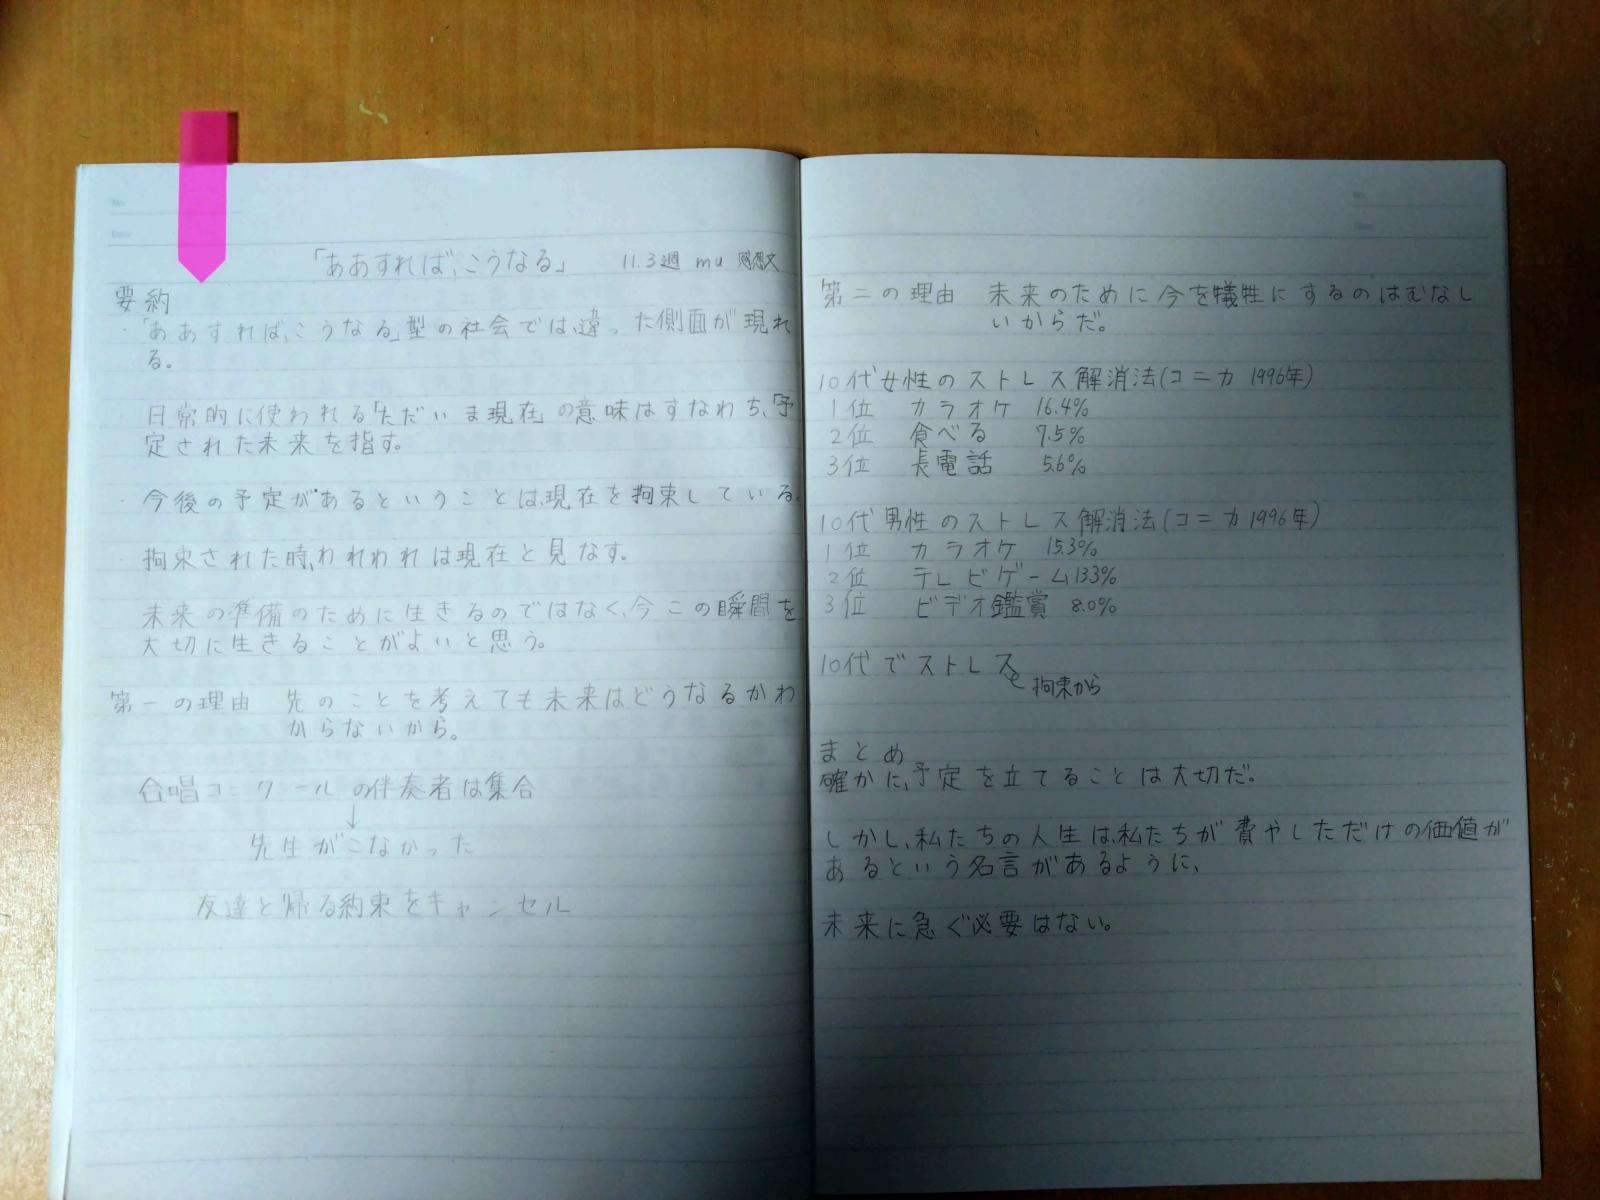 「ああすれば、こうなる」 11.3週 mu 感想文
要約
・「ああすれば、こうなる」型の社会では、違った側面が現れ
る。
・日常的に使われる「ただいま現在」の意味はすなわち、予
定された未来を指す。
・今後の予定があるということは、現在を拘束している。
・拘束された時、われわれは現在と見なす。
未来の準備のために生きるのではなく、今この瞬間を
大切に生きることがよいと思う。
第一の理由 先のことを考えても未来はどうなるかわ
からないから。
合唱コンクールの伴奏者は集合
↓
先生がこなかった
友達と帰る約束をキャンセル
第二の理由 未来のために今を犠牲にするのはむなし
いからだ。
10代女性のストレス解消法(コニカ 1996年)
1位 カラオケ 16.4%
2位 食べる 7.5%
3位 長電話 5.6%
10代男性のストレス解消法(コニカ 1996年)
1位 カラオケ 15.3%
2位 テレビゲーム 13.3%
3位 ビデオ鑑賞 8.0%
10代でストレス
拘束から
まとめ
確かに、予定を立てることは大切だ。
しかし、私たちの人生は、私たちが費やしただけの価値が
あるという名言があるように、
未来に急ぐ必要はない。